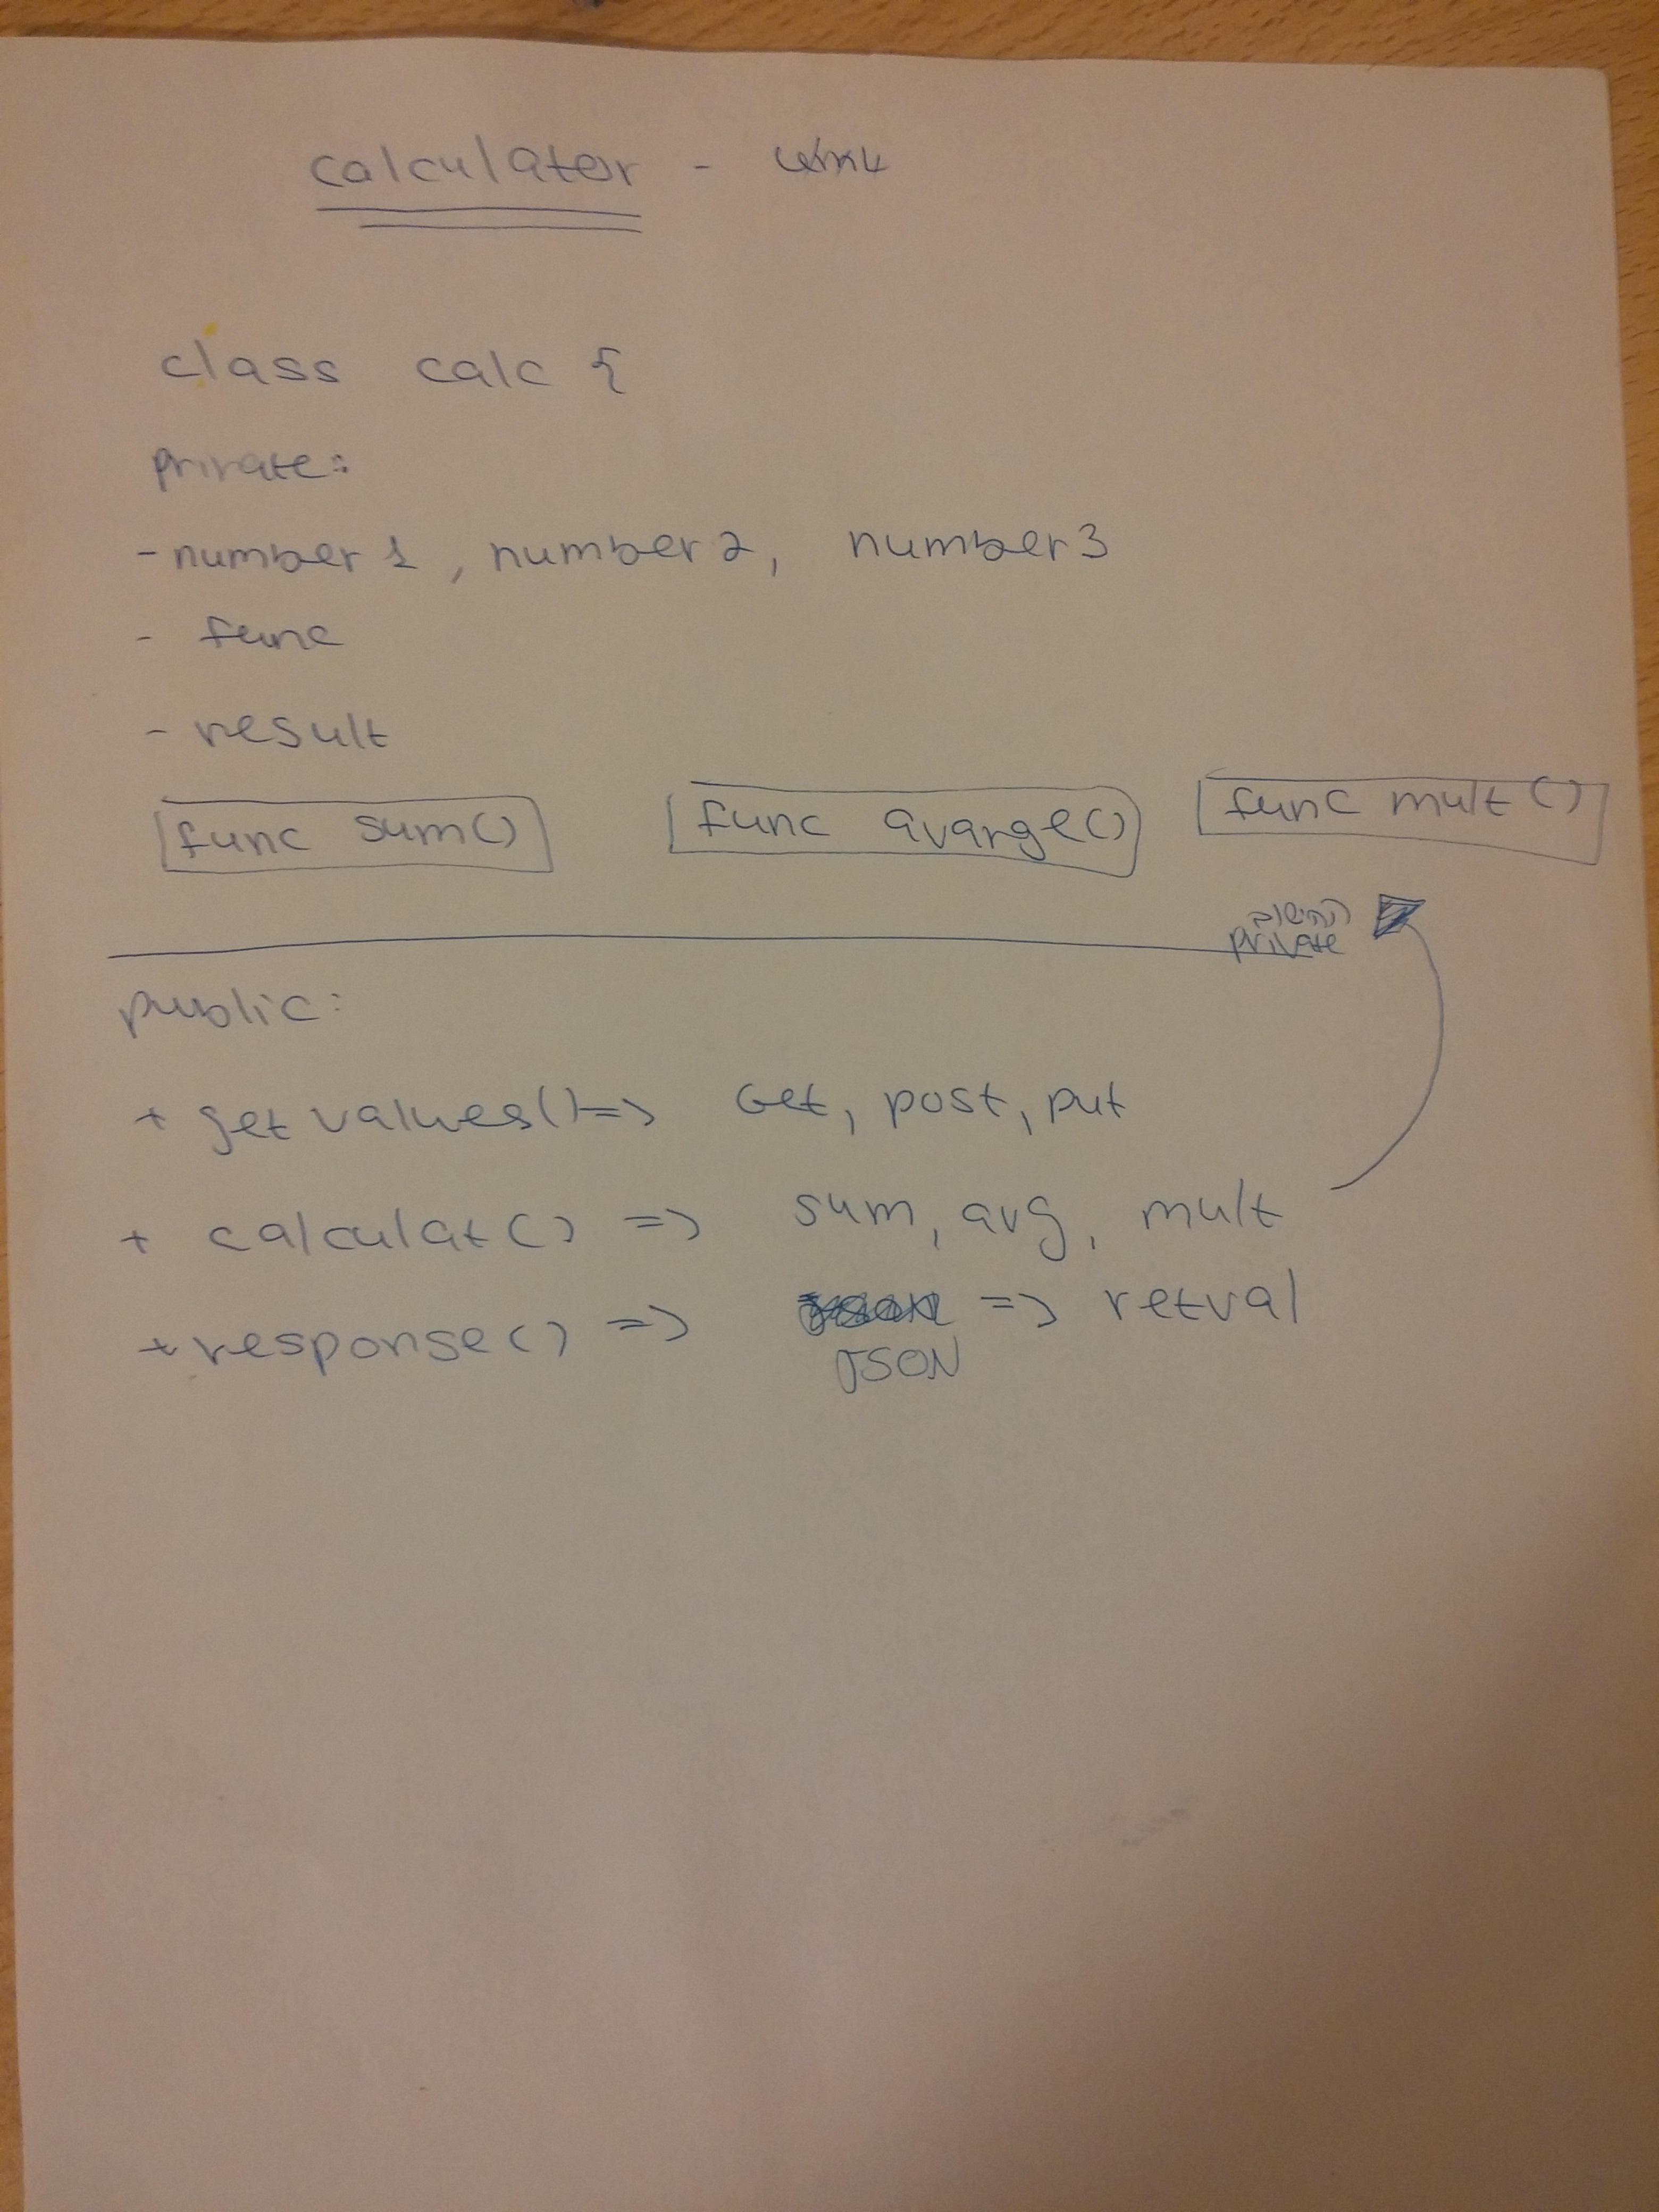 calculator -
class calc {
private:
- number1, number2, number3
- func
- result
func sum() func avarge() func mult()
private
public:
+ getvalues() => Get, post, put
+ calculat() => sum, avg, mult
+ response() => => retval
JSON